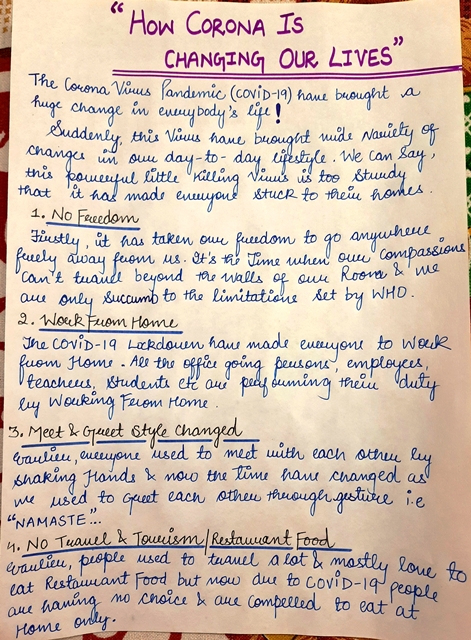 "HOW CORONA IS
CHANGING OUR LIVES"
The Corona Virus Pandemic (COVID-19) have brought a
huge change in everybody's life!
Suddenly, this Virus have brought wide Variety of
changes in our day-to-day lifestyle. We can Say,
this powerful little Killing Virus is too Sturdy
that it has made everyone Stuck to their homes.
1. No Freedom
Firstly, it has taken our freedom to go anywhere
freely away from us. It's the Time when our compassions
can't travel beyond the walls of our Room & we
are only Succumb to the limitations Set by WHO.
2. Work From Home
The COVID-19 Lockdown have made everyone to Work
from Home. All the office going persons, employees,
teachers, Students etc are performing their duty
by Working From Home.
3. Meet & Greet Style Changed
Earlier, everyone used to meet with each other by
Shaking Hands & now the Time have changed as
we used to Greet each other through gesture i.e
"NAMASTE"...
4. No Travel & Tourism/Restaurant Food
Earlier, people used to travel a lot & mostly love to
eat Restaurant Food but now due to COVID-19 people
are having no choice & are compelled to eat at
Home only.